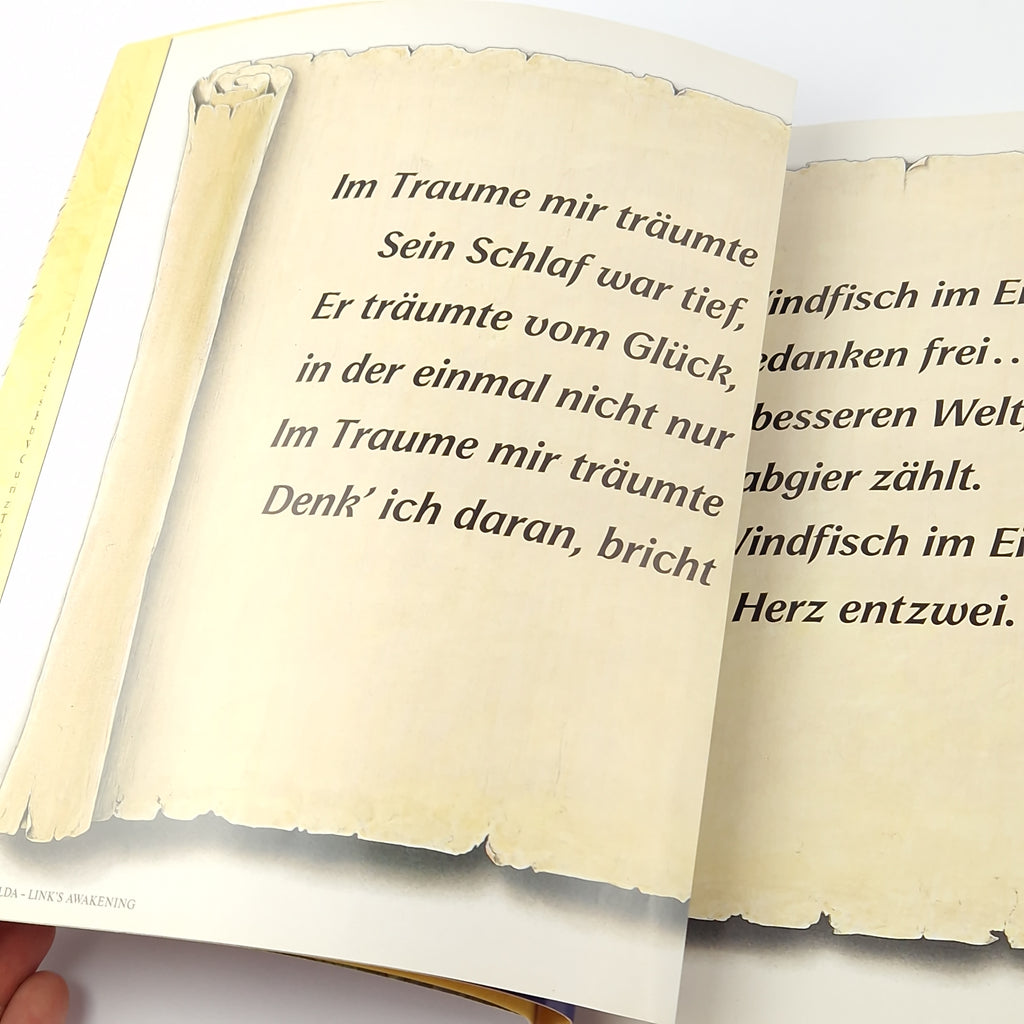 Im Traume mir träumte
Sein Schlaf war tief,
Er träumte vom Glück,
in der einmal nicht nur
Im Traume mir träumte
Denk' ich daran, bricht
indfisch im Ei
edanken frei...
besseren Welt,
abgier zählt.
indfisch im Ei
Herz entzwei.
LDA - LINK'S AWAKENING